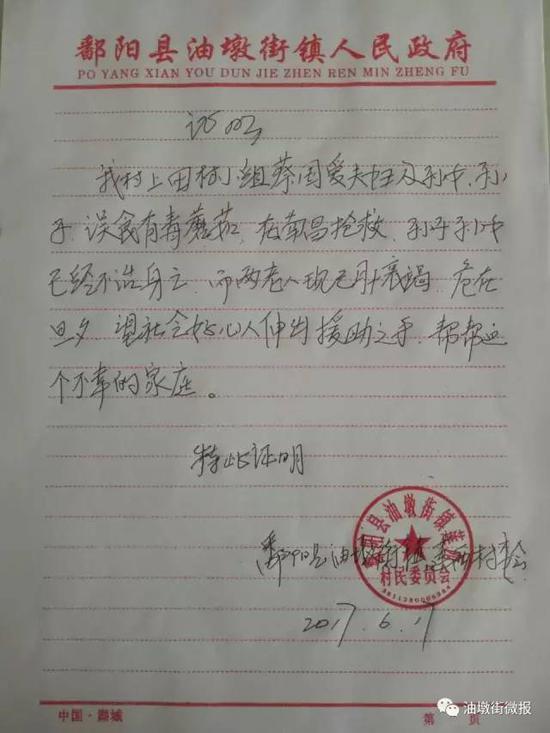 鄱阳县油墩街镇人民政府
PO YANG XIAN YOU DUN JIE ZHEN REN MIN ZHENG FU
证明
我村上田村小组蔡国爱夫妇及孙女、孙
子误食有毒蘑菇,在南昌抢救,孙子孙女
已经不治身亡,而两老人现已肝衰竭,危在
旦夕,望社会好心人伸出援助之手,帮帮这
个不幸的家庭。
特此证明
鄱阳县油墩街镇 村委会
鄱阳县油墩街镇
村民委员会
2017.6.17
中国·鄱城
第 页
油墩街微报